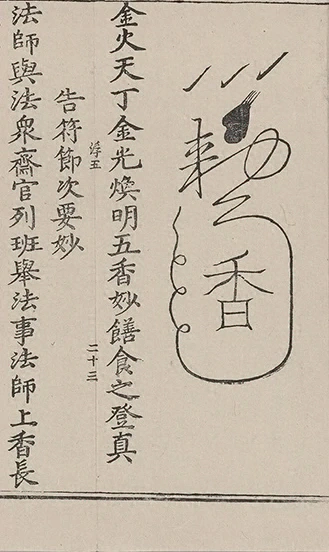 勑
香
金火天丁金光煥明五香妙饍食之登真
浮五
二十三
告符節次要妙
法師與法衆齋官列班舉法事法師上香長